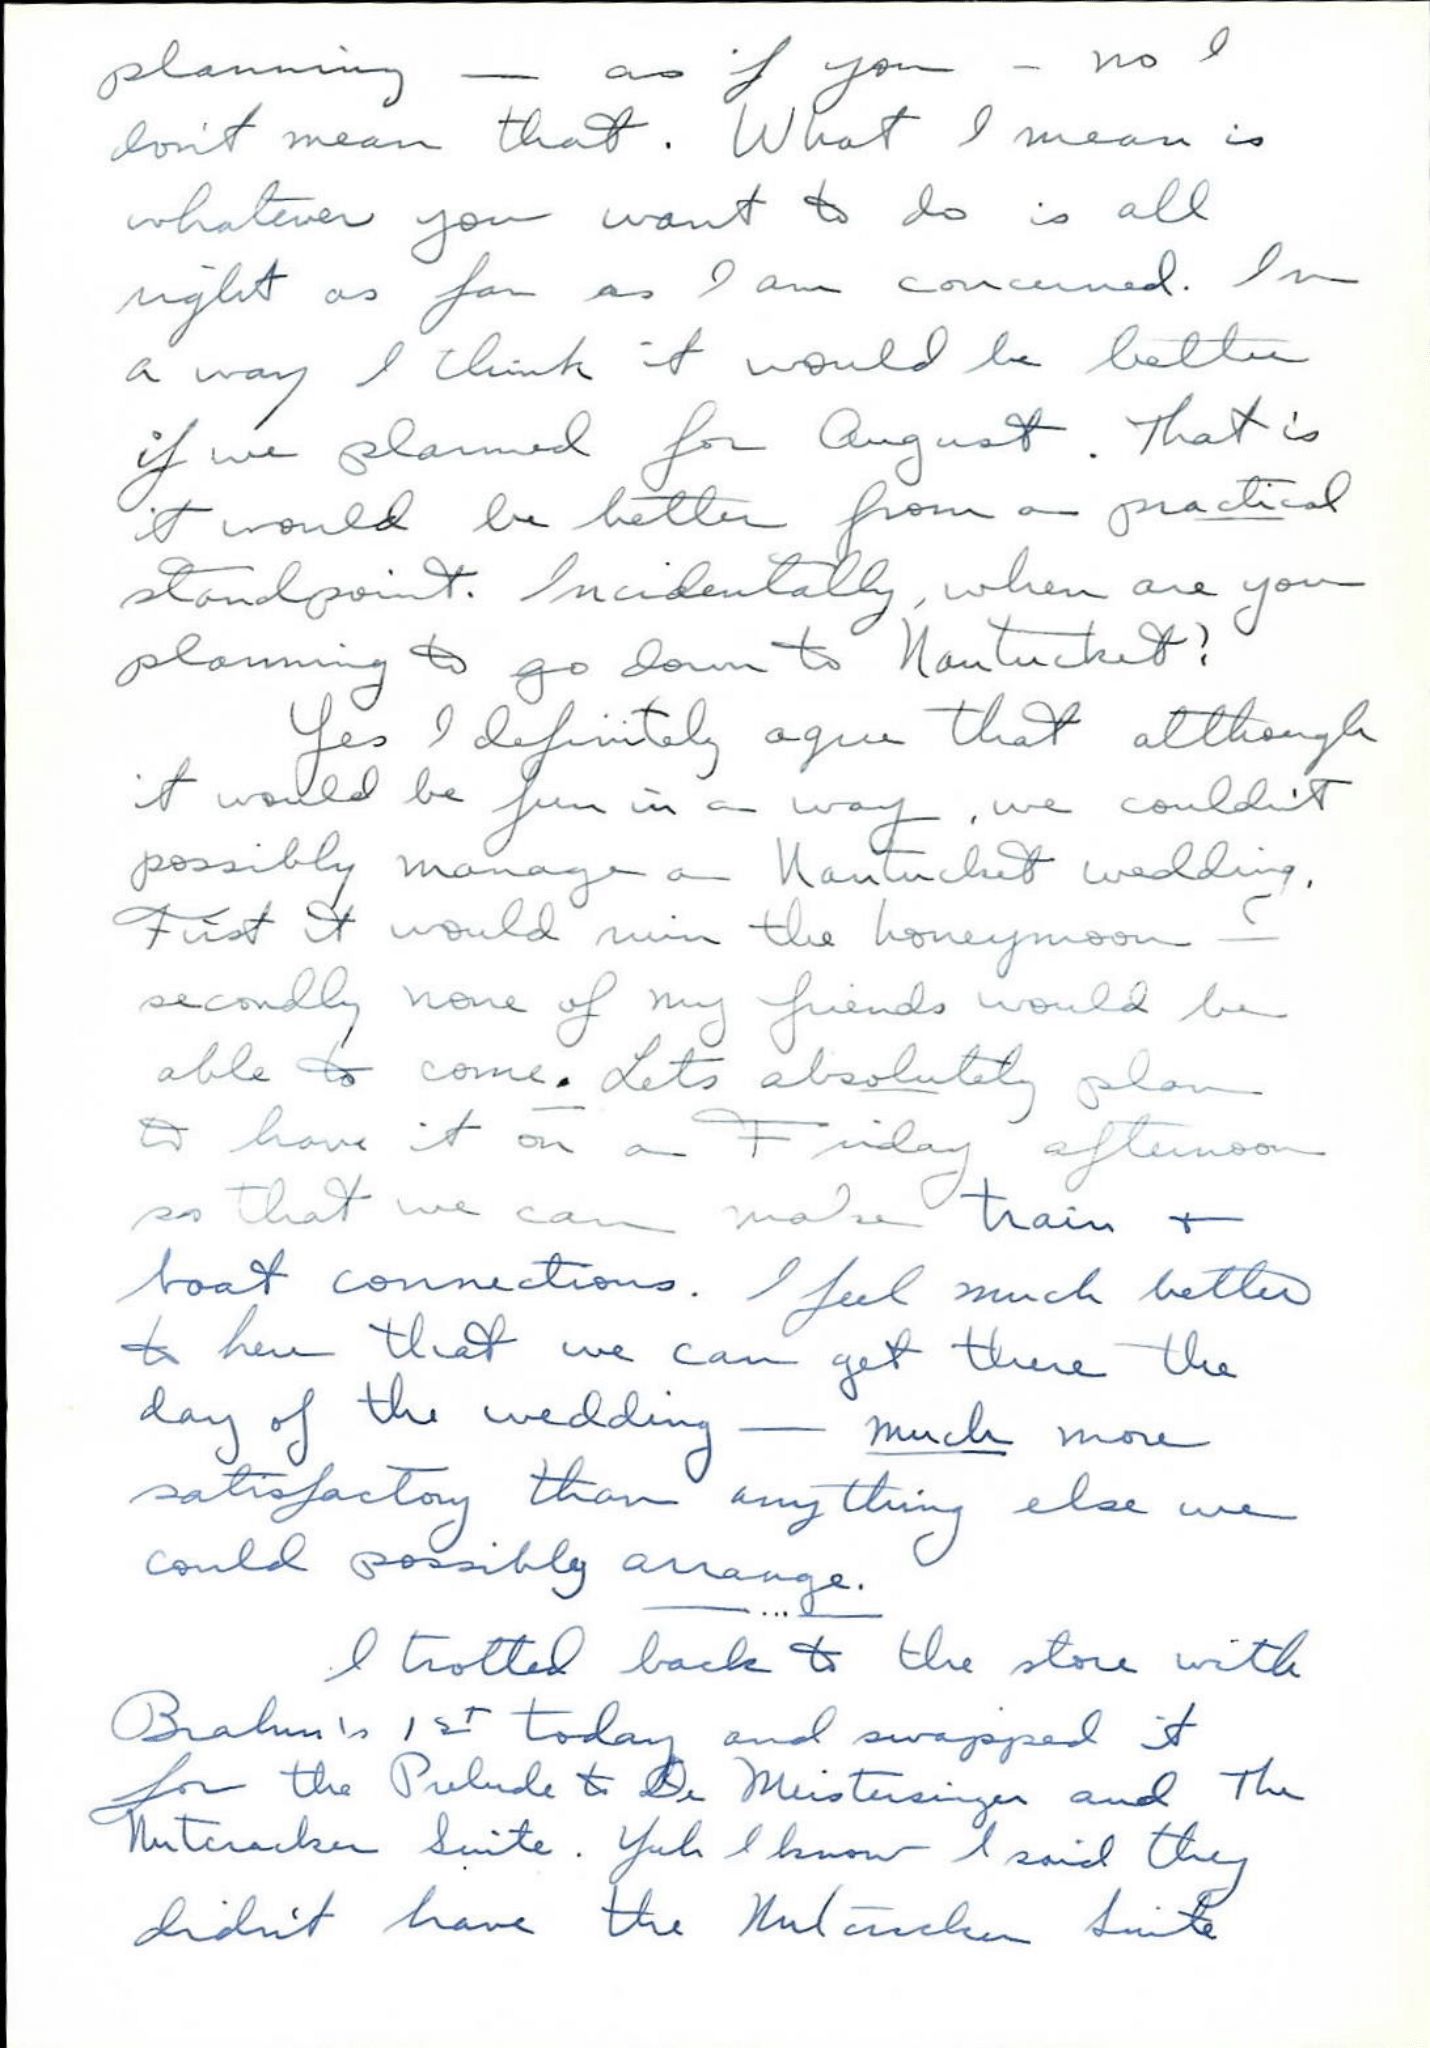 planning — as if you - no I
don't mean that. What I mean is
whatever you want to do is all
right as far as I am concerned. In
a way I think it would be better
if we planned for August. That is
it would be better from a practical
standpoint. Incidentally, when are you
planning to go down to Nantucket?
Yes I definitely agree that although
it would be fun in a way, we couldn't
possibly manage a Nantucket wedding.
First it would ruin the honeymoon —
secondly none of my friends would be
able to come. Lets absolutely plan
to have it on a Friday afternoon
so that we can make train +
boat connections. I feel much better
to hear that we can get there the
day of the wedding — much more
satisfactory than anything else we
could possibly arrange.
— ... —
I trotted back to the store with
Brahm's 1st today and swapped it
for the Prelude to De Meistersinger and The
Nutcracker Suite. Yuh I know I said they
didn't have the Nutcracker Suite